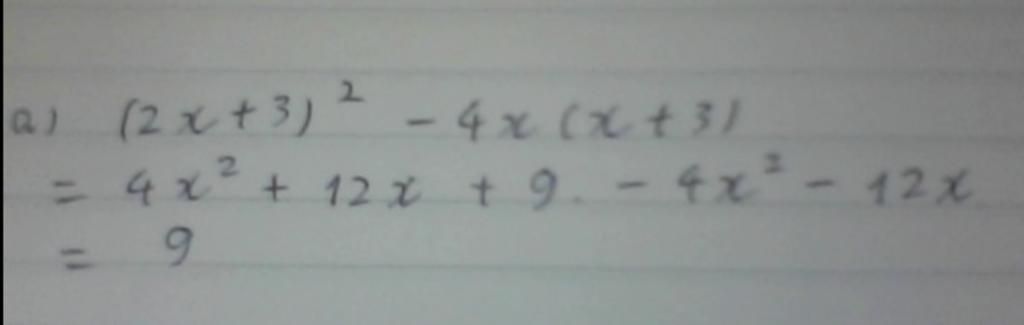 a) (2x+3)² - 4x(x+3)
= 4x² + 12x + 9. - 4x² - 12x
= 9